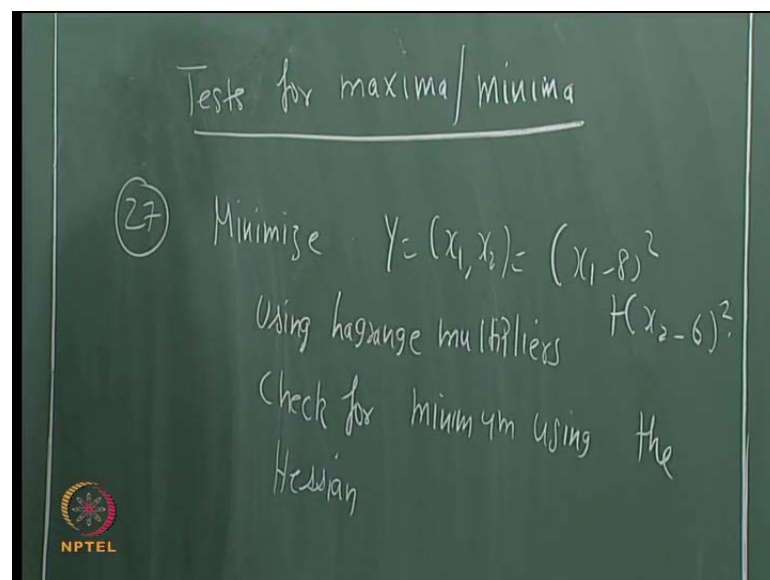 Tests for maxima/minima
27 Minimize Y=(x₁,x₂)= (x₁-8)²
+(x₂-6)².
Using Lagrange multipliers
Check for minimum using the
Hessian
NPTEL